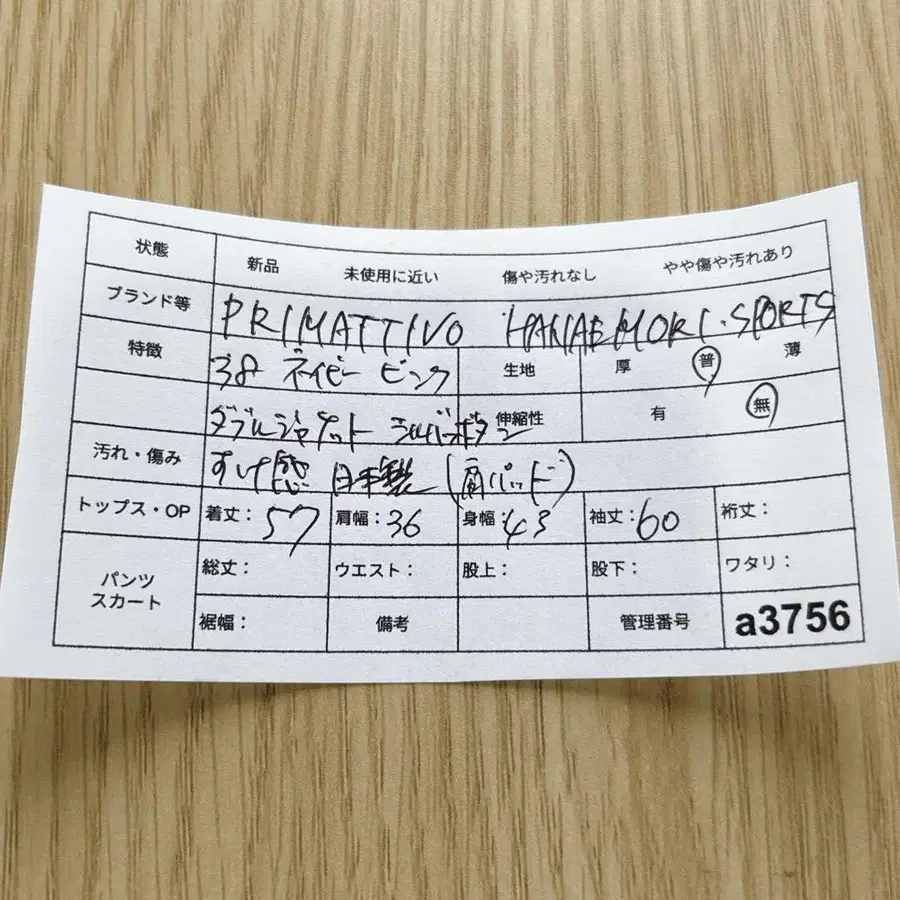 状態 新品 未使用に近い 傷や汚れなし やや傷や汚れあり
ブランド等 PRIMATTIVO HANAE MORI・SPORTS
特徴 38 ネイビー ピンク 生地 厚 普 薄
ダブルジャケット シルバーボタン 伸縮性 有 無
汚れ・傷み すけ感 日本製 (肩パッド)
トップス・OP 着丈：57 肩幅：36 身幅：43 袖丈：60 裄丈：
パンツ スカート 総丈： ウエスト： 股上： 股下： ワタリ：
裾幅： 備考 管理番号 a3756